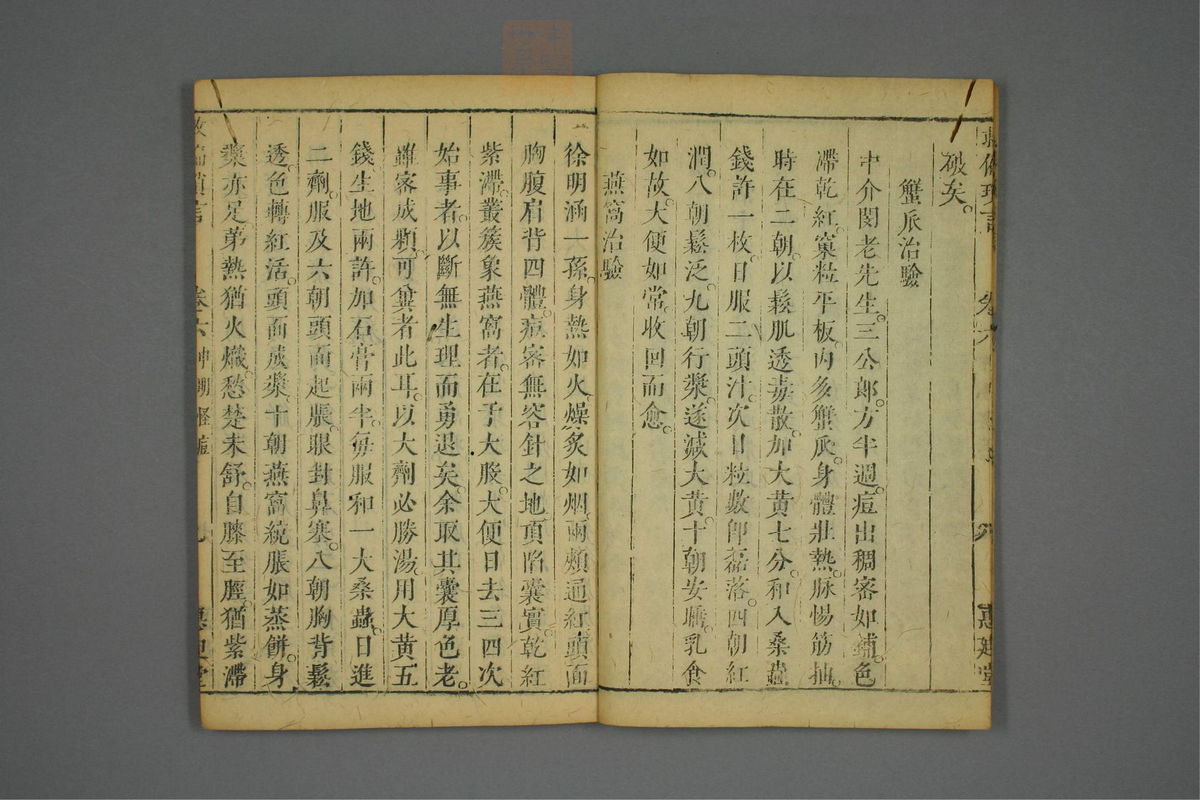 破矣。
蟹爪治驗
中介閔老先生。三公郎。方半週。痘出稠密如鋪。色
滯乾紅。窠粒平板。內多蟹爪。身體壯熱。脉惕筋抽。
時在二朝。以鬆肌透毒散。加大黃七分。和入桑蟲
錢許一枚。日服二頭汁。次日粒數卽磊落。四朝紅
潤。八朝鬆泛。九朝行漿。遂減大黃。十朝安。乳食
如故。大便如常。收回而愈。
燕窩治驗
徐明涵一孫。身熱如火。燥炙如烟。兩頰通紅。頭面
胸腹肩背四體。痘密無容針之地。頂陷囊實。乾紅
紫滯。叢簇象燕窩者。在于大股。大便日去三四次。
始事者。以斷無生理而勇退矣。余取其囊厚色老。
雖密成顆。可冀者此耳。以大劑必勝湯。用大黃五
錢生地兩許。加石膏兩半。每服和一大桑蟲。日進
二劑。服及六朝頭面起脹。眼封鼻塞。八朝胸背鬆
透。色轉紅活。頭面成漿。十朝燕窩統脹如蒸餅。身
漿亦足。苐熱猶火熾。愁楚未舒。自膝至脛。猶紫滯
卷六